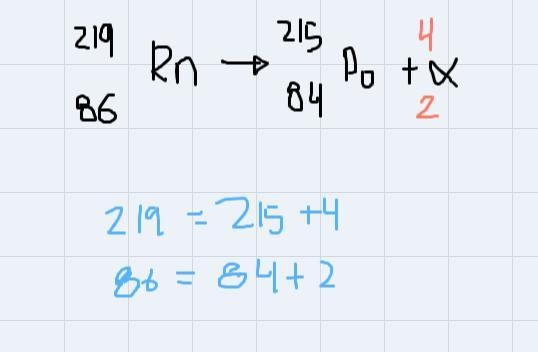 219 215 4
Rn → Po + α
86 84 2
219 = 215 + 4
86 = 84 + 2